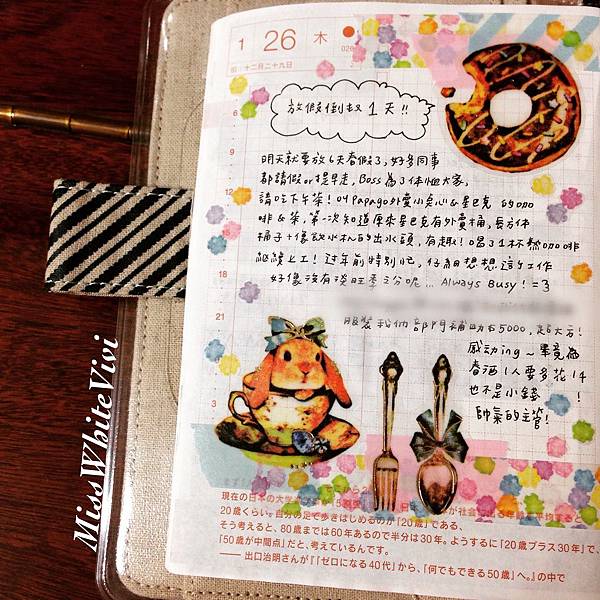 1 26 木
旧:十二月二十九日
026
放假倒數1天!!
6
明天就要放6天春假了,好多同事
9
都請假or提早走,Boss為了体恤大家,
12
請吃下午茶!叫Papago外賣小点心&星巴克的咖
啡&茶,第一次知道原來星巴克有外賣桶,長方体
桶子+像飲水机的出水頭,有趣!喝了1杯熱咖啡
継續上工!过年前特別忙,仔細想想這个工作
18
好像沒有淡旺季之分呢... Always Busy! =3
21
部門補助右5000,超大方!
感动ing~畢竟
春酒1人要多花1千
3
也不是小錢!
帥氣的主管!
MissWhiteVivi
現在の日本の大学
20歳くらい。自分の足で歩きはじめるのが「20歳」である、
そう考えると、80歳までは60年あるので半分は30年。ようするに「20歳プラス30年」で、
「50歳が中間点」だと、考えているんです。
——出口治明さんが『「ゼロになる40代」から、「何でもできる50歳」へ。』の中で